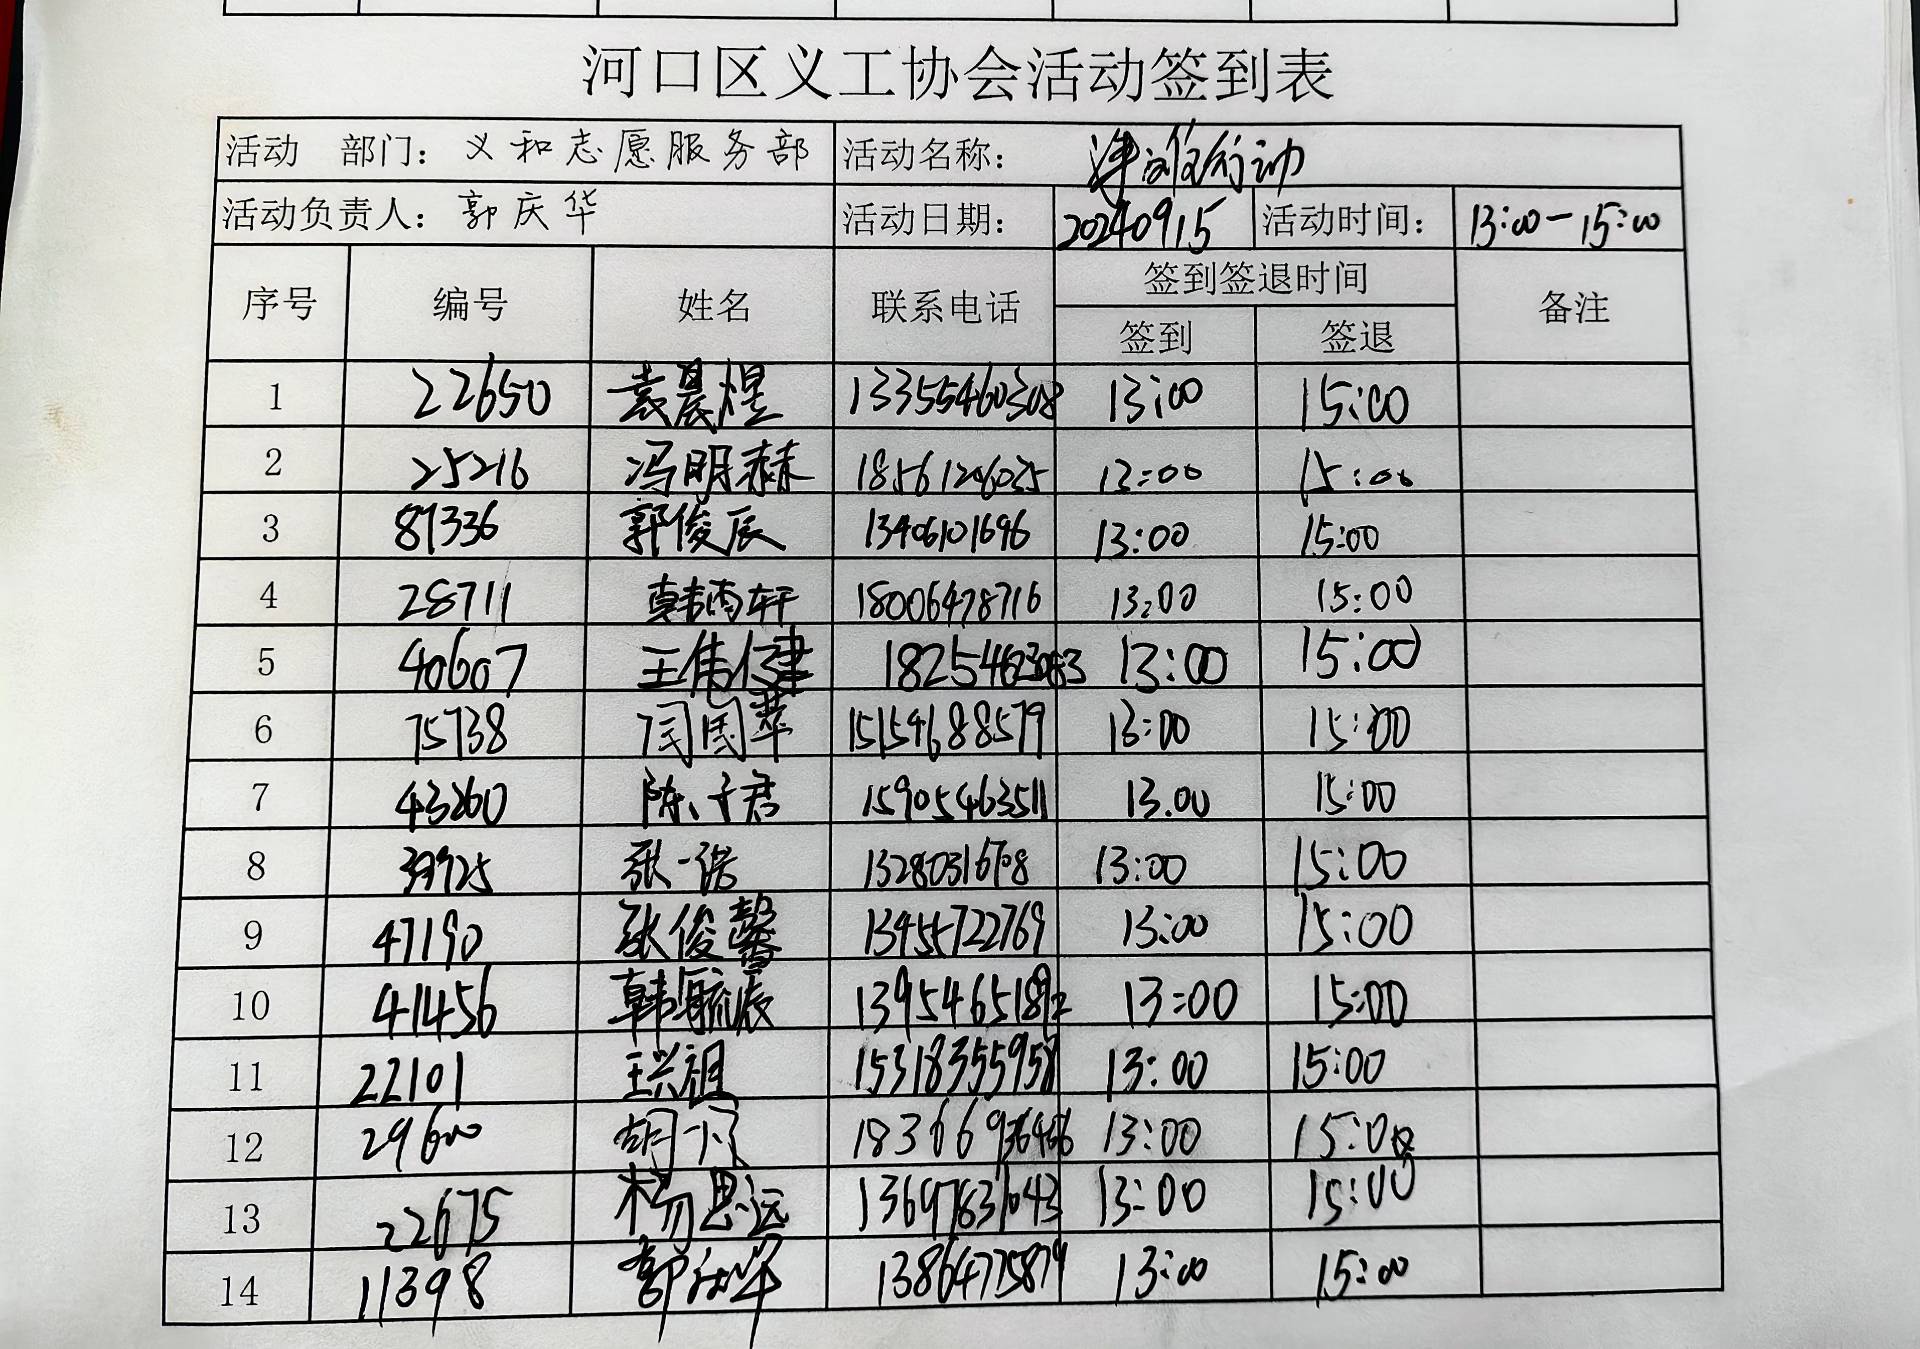 河口区义工协会活动签到表
活动 部门：义和志愿服务部 活动名称： 行动
活动负责人：郭庆华 活动日期：20240915 活动时间：13:00-15:00
序号 编号 姓名 联系电话 签到签退时间 备注
签到 签退
1 22650 袁晨煜 13355460308 13:00 15:00
2 25216 冯明赫 18561206035 13:00 15:00
3 87336 郭俊辰 13406101696 13:00 15:00
4 28711 韩雨轩 18006478716 13:00 15:00
5 40607 王伟健 18254623053 13:00 15:00
6 75738 闫国苹 15154688579 13:00 15:00
7 43260 陈子君 15905463511 13.00 15:00
8 张一诺 13:00 15:00
9 47190 张俊馨 13455722769 13:00 15:00
10 41456 韩毓宸 13954651892 13:00 15:00
11 22101 王兴祖 15318355958 13:00 15:00
12 29600 胡 13:00 15:00
13 22675 杨思远 13697631043 13:00 15:00
14 11398 郭庆华 13864775879 13:00 15:00